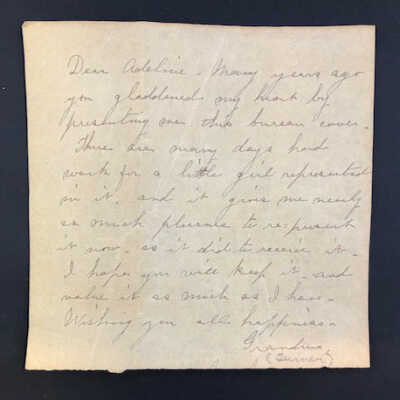 Dear Adeline. Many years ago
you gladdened my heart by
presenting me this bureau cover.
There are many days hard
work for a little girl represented
in it, and it gives me nearly
as much pleasure to re-present
it now, as it did to receive it.
I hope you will keep it, and
value it as much as I have.
Wishing you all happiness.
Grandma
(Turner)